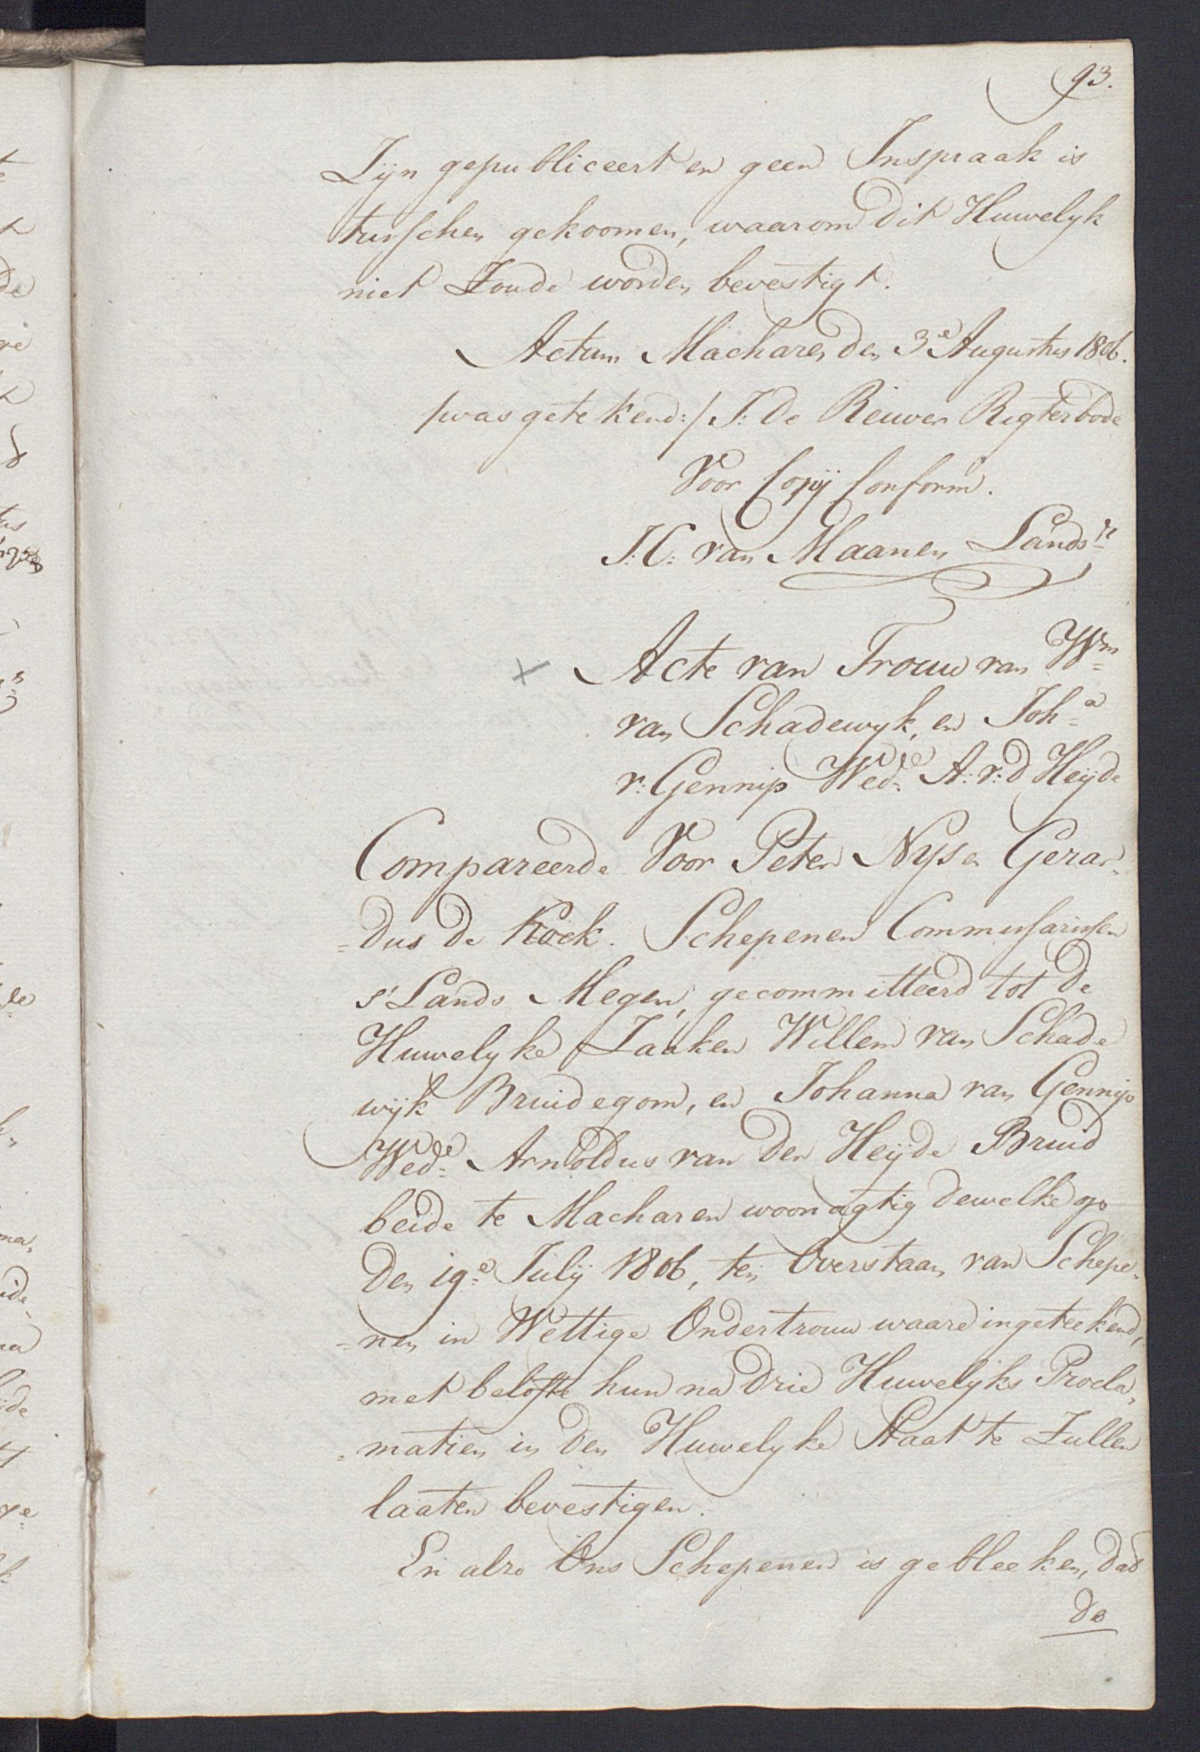 93.
Zijn gepubliceert en geen Inspraak is
tusschen gekoomen, waarom dit Huwelyk
niet Zoude worden bevestigt.
Actum Macharen den 3e Augustus 1806.
/was getekend:/ J: De Reuver Regterbode
Voor Copij Conform.
J: C: van Maanen Lands
Acte van Trouw van Wm
van Schadewyk, en Joha
v: Gennip Wede A: v: d Heijde
Compareerde Voor Peter Nijs en Gerar=
=dus de Kock. Schepenen Commissarissen
s' Lands Megen, gecommitteerd tot de
Huwelyke Zaaken Willem van Schade
wijk Bruidegom, en Johanna van Gennip
Wede Arnoldus van der Heijde Bruid
beide te Macharen woonagtig dewelke op
den 19e Julij 1806, ten Overstaan van Schepe=
=nen in Wettige Ondertrouw waare ingeteekend,
met belofte hun na drie Huwelyks Procla=
=matien in den Huwelyke Staat te Zullen
laaten bevestigen.
En alzo Ons Schepenen is gebleeken, dat
de